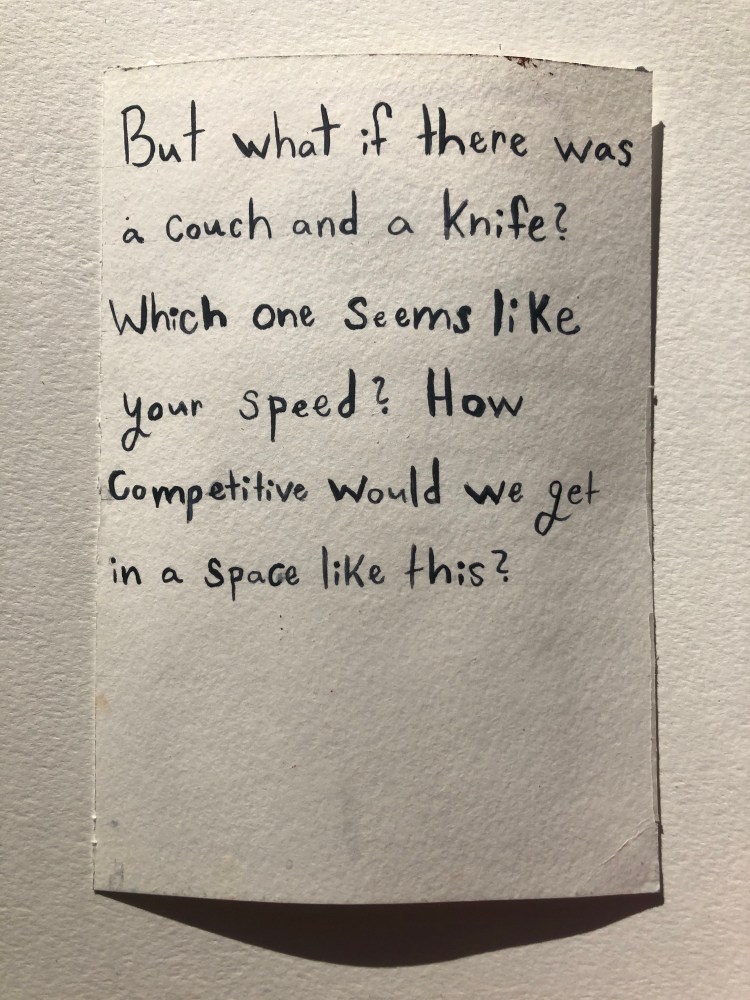 But what if there was
a couch and a knife?
Which one seems like
your speed? How
Competitive would we get
in a space like this?